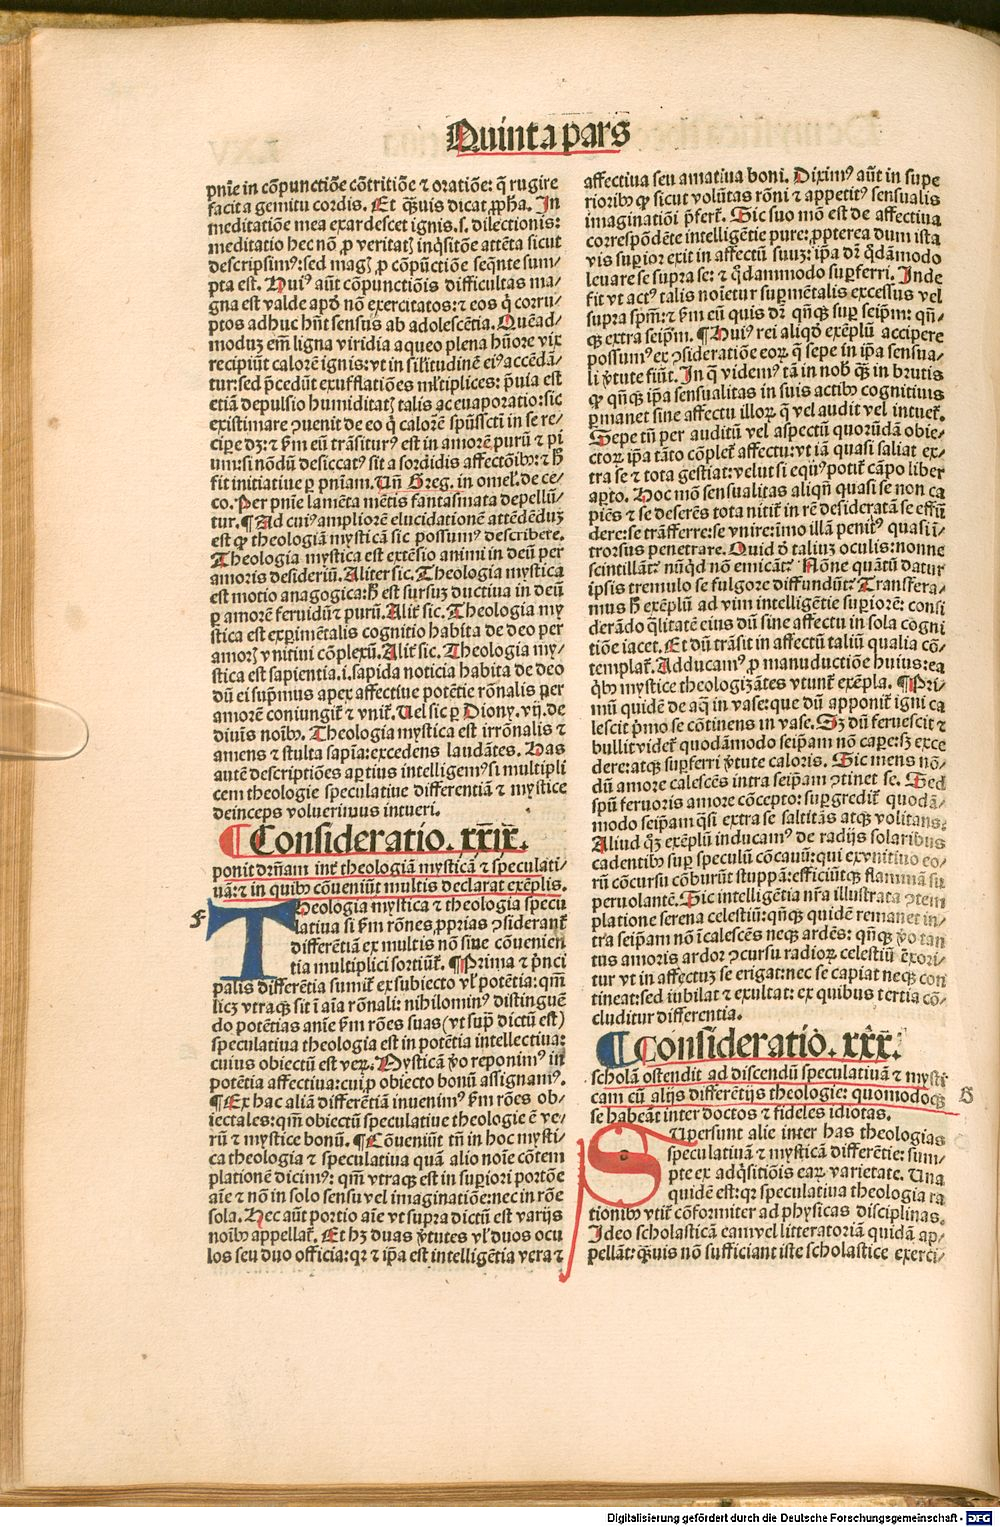 Quinta pars
pnīe in cōpunctiōe cōtritiōe ⁊ oratiōe: q̄ rugire
facit a gemitu cordis. Et q̄uis dicat ꝓpha. In
meditatiōe mea exardescet ignis .s. dilectionis:
meditatio hec nō ꝓ veritatꝭ inq̇sitōe attēta sicut
descripsimꝰ: sed magꝭ ꝓ cōpūctiōe seq̄nte sum/
pta est. Huiꝰ aūt cōpunctiōis difficultas ma/
gna est valde apō nō exercitatos: ⁊ eos q̇ corru/
ptos adhuc hn̄t sensus ab adolescētia. Quēad/
moduꝫ em̄ ligna viridia aqueo plena hūore vix
recipiūt calorē ignis: vt in sil̓itudinē eiꝰ accēdā/
tur: sed p̄cedūt exufflatiōes ml̓tiplices: p̄uia est
etiā depulsio humiditatꝭ talis ac euaporatio: sic
existimare ꝯuenit de eo q̇ calorē spūssctī in se re/
cipe dꝫ: ⁊ ẜm eū trāsiturꝰ est in amorē purū ⁊ pi
um: si nōdū desiccatꝰ sit a sordidis affectōibꝰ: ⁊ h̄
fit initiatiue ꝑ pn̄iam. Un̄ Greg. in omel̓. de ce/
co. Per pnīe lamēta mētis fantasmata depellū/
tur. ¶ Ad cuiꝰ ampliorē elucidationē attēdēduꝫ
est ꝙ theologiā mysticā sic possumꝰ describere.
Theologia mystica est extēsio animi in deū per
amoris desideriū. Aliter sic. Theologia mystica
est motio anagogica: h̄ est sursuꝫ ductiua in deū
ꝑ amorē feruidū ⁊ purū. Alit̓ sic. Theologia my
stica est exꝑimētalis cognitio habita de deo per
amorꝭ vnitiui cōplexū. Alit̓ sic. Theologia my/
stica est sapientia .i. sapida noticia habita de deo
dū ei sup̄mus apex affectiue potētie rōnalis per
amorē coniungit̓ ⁊ vnit̓. Uel sic ꝑ Diony. vij. de
diuīs noībꝰ. Theologia mystica est irrōnalis ⁊
amens ⁊ stulta sapīa: excedens laudātes. Has
autē descriptiōes aꝑtius intelligemꝰ si multipli
cem theologie speculatiue differentiā ⁊ mystice
deinceps voluerimus intueri.
¶ Consideratio. xxix.
ponit dr̄n̄am int̓ theologiā mysticā ⁊ speculati/
uā: ⁊ in quibꝰ cōueniūt multis declarat exēplis.
F
THeologia mystica ⁊ theologia specu
latiua si ẜm rōnes ꝓprias ꝯsiderant̓
differētiā ex multis nō sine cōuenien
tia multiplici sortiūt̓. ¶ Prima ⁊ p̄nci
palis differētia sumit̓ ex subiecto vl̓ potētia: qm̄
licꝫ vtraqꝫ sit ī aīa rōnali: nihilominꝰ distinguē
do potētias anīe ẜm rōes suas (vt supͣ dictū est)
speculatiua theologia est in potētia intellectiua:
cuius obiectū est veꝝ. Mysticā ꝟo reponimꝰ in
potētia affectiua: cui ꝓ obiecto bonū assignamꝰ.
¶ Ex hac aliā differētiā inuenimꝰ ẜm rōes ob/
iectales: qm̄ obiectū speculatiue theologie ē ve/
rū ⁊ mystice bonū. ¶ Cōueniūt tn̄ in hoc mysti/
ca theologia ⁊ speculatiua quā alio noīe cōtem
platiōnē dicimꝰ: qm̄ vtraqꝫ est in suꝑiori portōe
aīe ⁊ nō in solo sensu vel imaginatiōe: nec in rōe
sola. Hec aūt portio aīe vt supra dictū est varijs
noībꝰ appellat̓. Et hꝫ duas ꝟtutes vl̓ duos ocu
los seu duo officia: qꝛ ⁊ ip̄a est intelligētia vera ⁊
affectiua seu amatiua boni. Diximꝰ aūt in supe
rioribꝰ ꝙ sicut volūtas rōni ⁊ appetitꝰ sensualis
imaginatiōi p̄fert̓. Sic suo mō est de affectiua
correspōdēte intelligētie pure: ꝓpterea dum ista
vis suꝑior exit in affectū suuꝫ: ip̄a dr̄ q̇dāmodo
leuare se supra se: ⁊ q̇dammodo suꝑferri. Inde
fit vt actꝰ talis noīetur suꝑmētalis excessus vel
supra spm̄: ⁊ ẜm eū quis dr̄ qn̄qꝫ suꝑ seip̄m: qn̄/
qꝫ extra seip̄m. ¶ Huiꝰ rei aliqḋ exēplū accipere
possumꝰ ex ꝯsideratiōe eoꝝ q̄ sepe in ip̄a sensua/
li ꝟtute fiūt. In q̄ videmꝰ tā in nobꝭ q̄ꝫ in brutis
ꝙ qn̄qꝫ ip̄a sensualitas in suis actibꝰ cognitiuis
ꝑmanet sine affectu illoꝝ q̄ vel audit vel intuet̓.
Sepe tn̄ per auditū vel aspectū quorūdā obie/
ctoꝝ ip̄a tāto cōplet̓ affectu: vt iā quasi saliat ex/
tra se ⁊ tota gestiat: velut si equꝰ potit̓ cāpo liber
aꝑto. Hoc mō sensualitas aliqn̄ quasi se non ca
piēs ⁊ se deserēs tota nitit̓ in rē desideratā se effū
dere: se trāfferre: se vnire: imo illā penitꝰ quasi ī/
trorsus penetrare. Quid ꝺ̄ taliuꝫ oculis: nonne
scintillāt: nūq̇d nō emicāt: Nōne quātū datur
ipsis tremulo se fulgore diffundūt: Transfera/
mus h̄ exēplū ad vim intelligētie suꝑiorē: consi
derādo q̄litatē eius dū sine affectu in sola cogni
tiōe iacet. Et dū trāsit in affectū taliū qualia cō/
templat̓. Adducamꝰ ꝓ manuductiōe huius: ea
q̇bꝰ mystice theologizātes vtunt̓ exēpla. ¶ Pri/
mū quidē de aq̄ in vase: que dū apponit̓ igni ca
lescit p̄mo se cōtinens in vase. Sꝫ dū feruescit ⁊
bullit videt̓ quodāmodo seip̄am nō caꝑe: sꝫ exce
dere: atqꝫ suꝑferri ꝟtute caloris. Sic mens nō/
dū amore calescēs intra seip̄am ꝯtinet se. Sed
spū feruoris amore cōcepto: suꝑgredit̓ quodā/
modo seip̄am q̄si extra se saltitās atqꝫ volitans.
Aliud q̄ꝫ exēplū inducamꝰ de radijs solaribus
cadentibꝰ suꝑ speculū cōcauū: qui ex vnitiuo eo/
rū cōcursu cōburūt stuppā: efficiūtqꝫ flammā su
peruolantē. Sic intelligētia nr̄a illustrata ꝯtem
platione serena celestiū: qn̄qꝫ quidē remanet in/
tra seip̄am nō īcalescēs neqꝫ ardēs: qn̄qꝫ ꝟo tan
tus amoris ardor ꝯcursu radioꝝ celestiū exori/
tur vt in affectuꝫ se erigat: nec se capiat neqꝫ con
tineat: sed iubilat ⁊ exultat: ex quibus tertia cō/
cluditur differentia.
¶ Consideratio. xxx.
scholā ostendit ad discendū speculatiuā ⁊ mysti
cam cū alijs differētijs theologie: quomodoqꝫ
se habeāt inter doctos ⁊ fideles idiotas.
G
SUpersunt alie inter has theologias
speculatiuā ⁊ mysticā differētie: sum/
pte ex adq̇sitiōis eaꝝ varietate. Una
quidē est: qꝛ speculatiua theologia ra
tionibꝰ vtit̓ cōformiter ad physicas disciplinas.
Ideo scholasticā eam vel litteratoriā quidā ap/
pellāt: q̄uis nō sufficiant iste scholastice exerci/
Digitalisierung gefördert durch die Deutsche Forschungsgemeinschaft - DFG